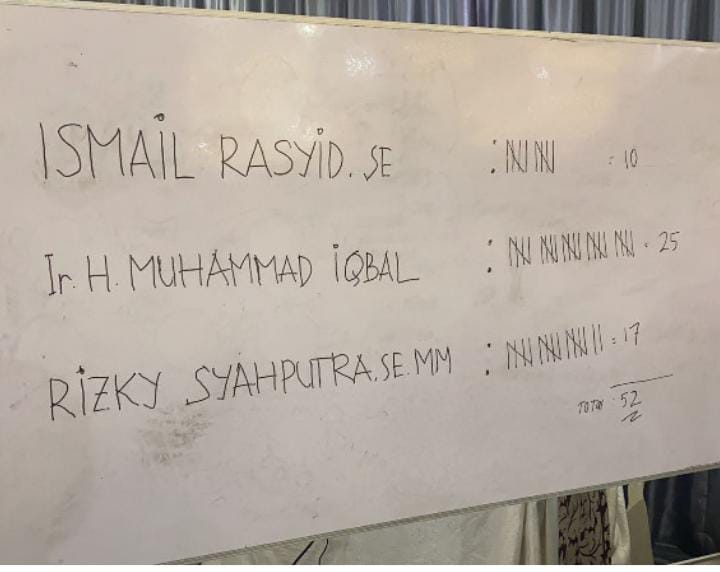 ISMAiL RASYiD. SE : 𝍸 𝍸 = 10
Ir. H. MUHAMMAD iQBAL : 𝍸 𝍸 𝍸 𝍸 𝍸 = 25
RiZKY SYAHPUTRA. SE. MM : 𝍸 𝍸 𝍸 || = 17
TOTAL : 52